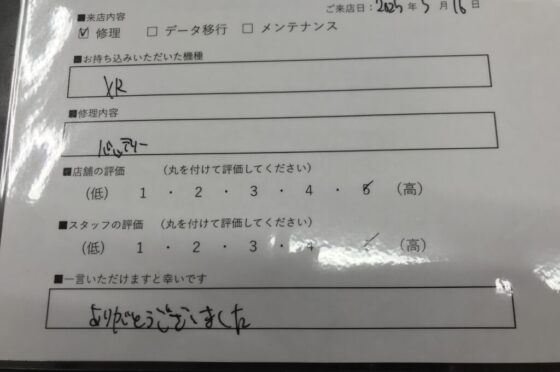 ■来店内容 ご来店日：2025年5月16日
☑ 修理 □ データ移行 □ メンテナンス
■お持ち込みいただいた機種
XR
■修理内容
バッテリー
■店舗の評価 （丸を付けて評価してください）
（低） 1 ・ 2 ・ 3 ・ 4 ・ 5 （高）
■スタッフの評価 （丸を付けて評価してください）
（低） 1 ・ 2 ・ 3 ・ 4 （高）
■一言いただけますと幸いです
ありがとうございました